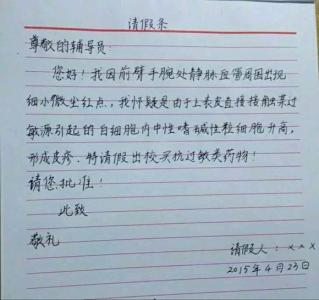 请假条
尊敬的辅导员:
您好!我因前臂手腕处静脉血管周围出现
细小微尘红点,我怀疑是由于上表皮直接接触某过
敏源引起的白细胞内中性嗜碱性粒细胞升高,
形成皮疹.特请假出校买抗过敏类药物!
请您批准!
此致
敬礼
请假人:×××
2015年4月23日